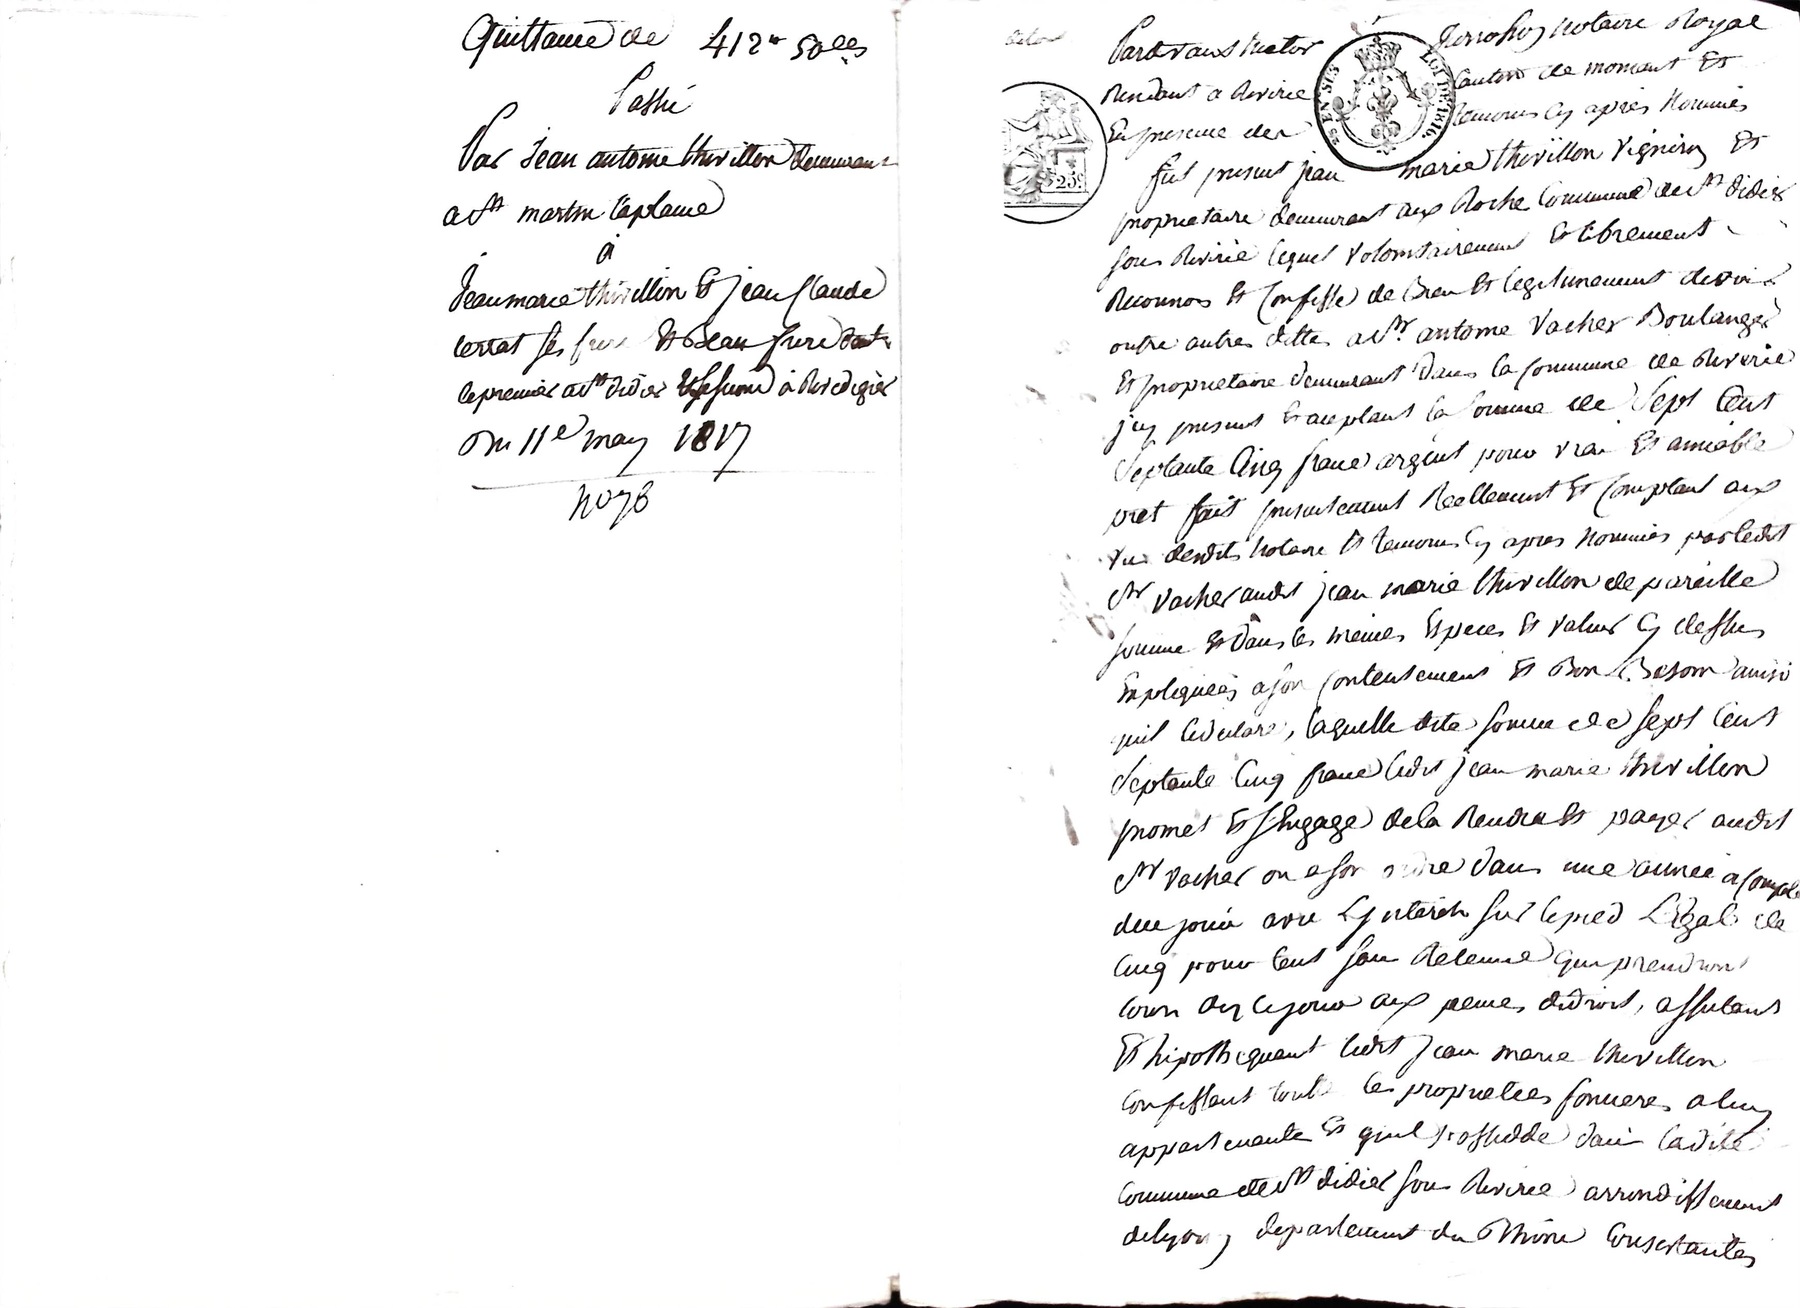 Quittance de 412 # 50 ces
Passé
Par jean antoine thivillon demeurant
a St martin laplaine
à
Jeanmarie thivillon Et jean Claude
ses frere Et Beau frere dont
lepremier a St didier Et lesecond à
Du 11e may 1817
No 78
Pardevant hector notaire Royal
Résidant a Riverie canton de mornant Et
En presence des temoins Cy après Nommés
fut present jean marie thivillon Vigneron Et
proprietaire demeurant aux Roche Commune de St didier
sous Riverie lequel volontairement Et librement
Reconnois Et Confesse de Bien Et legitimement devoir
outre autres dettes a Sr. antoine Vacher Boulanger
Et proprietaire demeurant dans la Commune de Riverie
jcy present Et acceptant la Somme de Sept Cent
Septante Cinq franc argent pour vrai Et amiable
pret fait presentement Reellement Et Comptant aux
vu desdits Notaire Et temoins Cy apres Nommés par ledit
Sr Vacher audit jean marie thivillon de pareille
somme Et dans les memes Especes Et valeur Cy dessus
Expliqueés a son Contentement Et Bon Besoin ainsi
quil ledeclare, laquelle dite somme de Sept Cent
Septante Cinq franc ledit jean marie thivillon
promet Et sEngage dela Rendre Et payer audit
Sr Vacher ou a son ordre dans une année a Compter
due jour avec Lynterêts sur lepied Légal de
Cinq pour Cent sans Retenue qui prendront
cour dez cejour aux peines dedroit, affectant
Et hipothequant ledit jean marie thivillon
Confessent toute les proprietées foncieres a luy
appartenante Et quil possedde dans ladite
Commune de St didier sous Riverie arrondissement
delyon, departement du Rhône Consistantes
25c
LOI DE 1816.